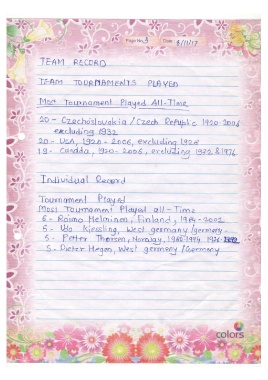 Page No. 3 Date 8/11/17
TEAM RECORD
TEAM TOURNAMENTS PLAYED
Most Tournament Played All-Time
20 - Czechoslovakia / Czech Republic 1920-2006
excluding 1932
20 - USA, 1920 - 2006, excluding 1928
19 - Canada, 1920 - 2006, excluding 1972 & 1976
Individual Record
Tournament Played
Most Tournament Played all-Time
6 - Raimo Helminen, Finland, 1984 - 2002
5 - Udo Kiessling, West germany / germany -
5 - Petter Thorsen, Norway,
5 - Dieter Hegen, West germany / Germany
colors